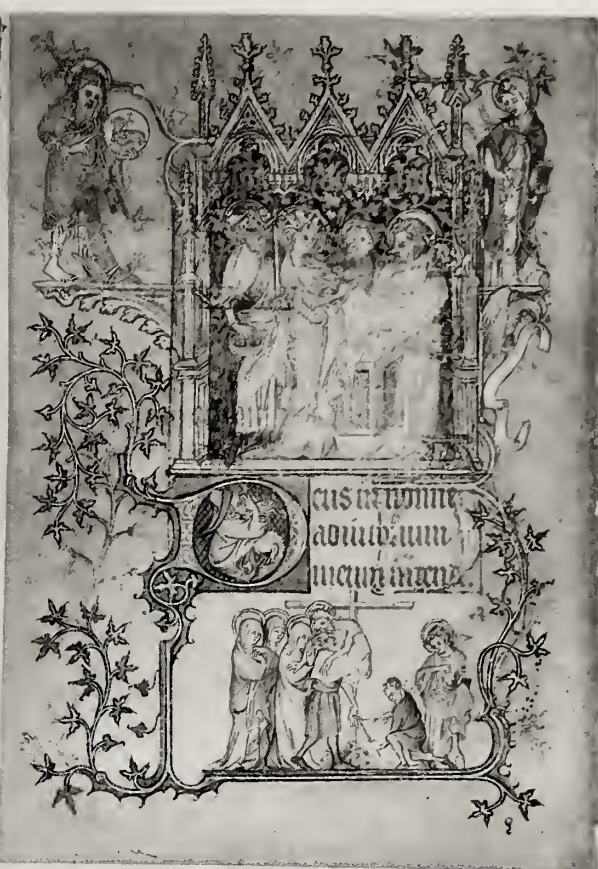 eus in nomine
adiutorium
meum intende.